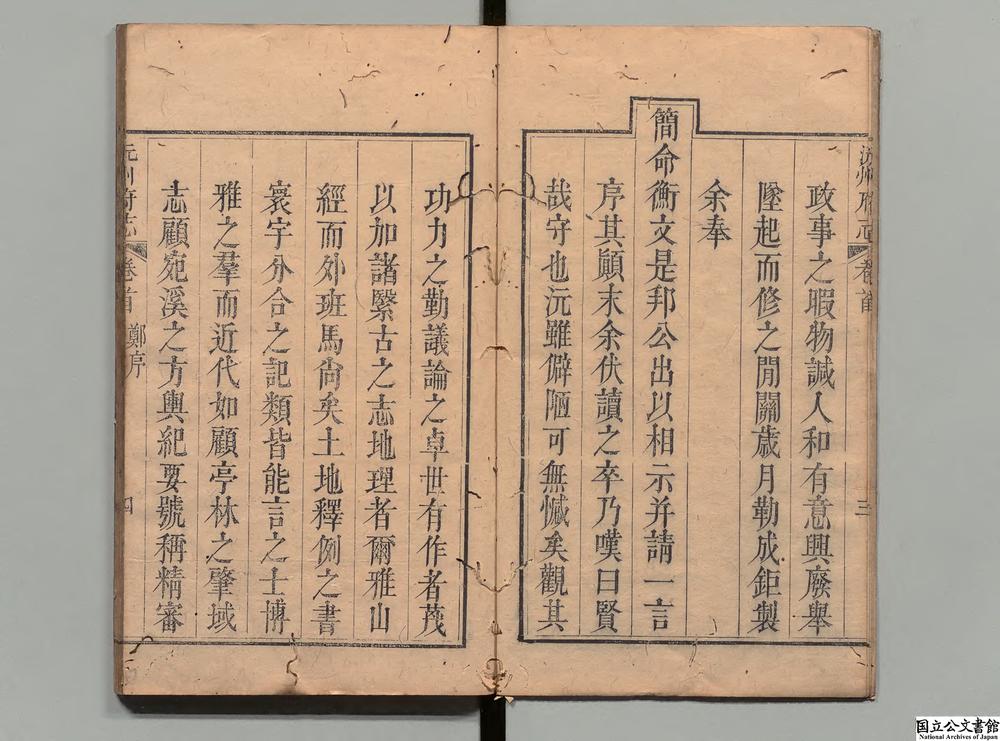 沅州府志 卷首 三
政事之暇物諴人和有意興廢舉
墜起而修之閒關歳月勒成鉅製
余奉
簡命衡文是邦公出以相示并請一言
序其顛末余伏讀之卒乃嘆曰賢
哉守也沅雖僻陋可無憾矣觀其
功力之勤議論之卓世有作者蔑
以加諸繄古之志地理者爾雅山
經而外班馬尙矣土地釋例之書
寰宇分合之記類皆能言之士博
雅之羣而近代如顧亭林之肇域
志顧宛溪之方輿紀要號稱精審
沅州府志 卷首 鄭序 四
国立公文書館
National Archives of Japan